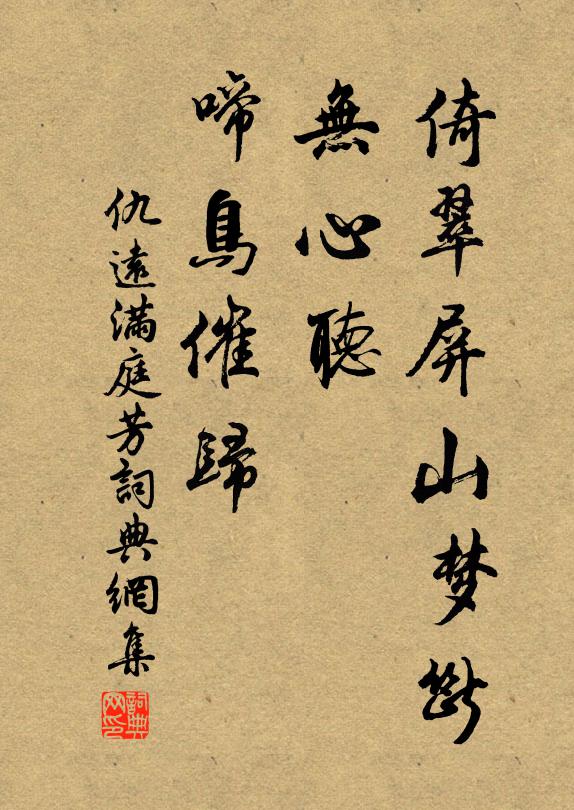 倚翠屏山梦斷
無心聽
啼鳥催歸
仇遠滿庭芳詞典網集
詞典网印